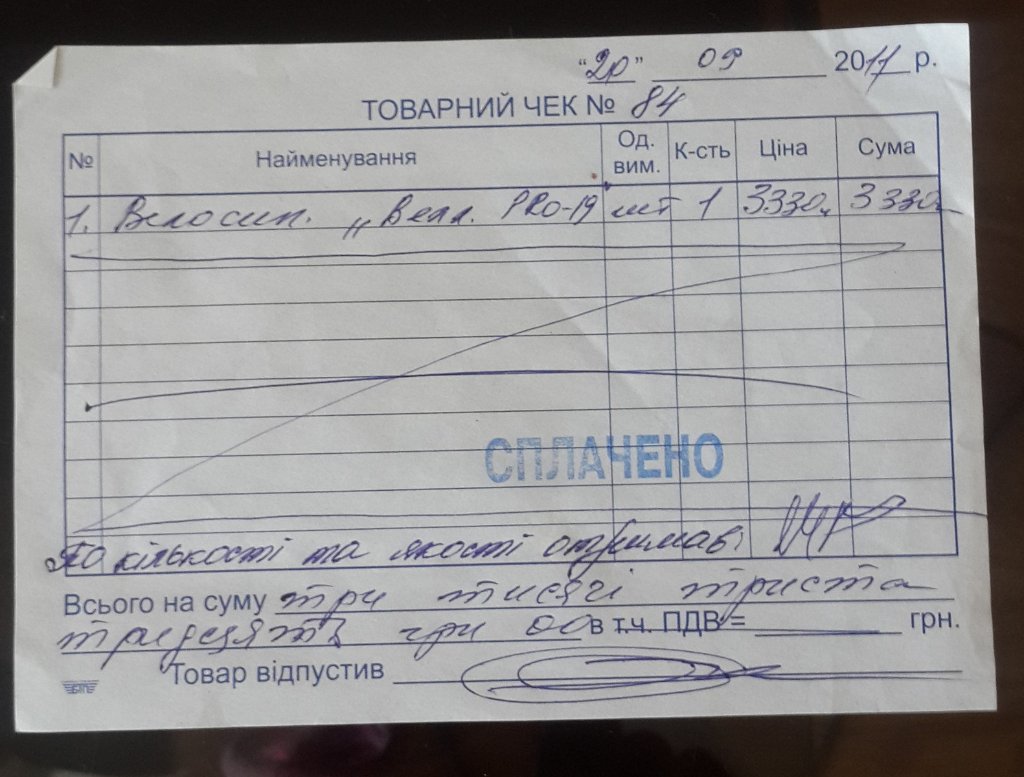 "20" 09 2017 р.
ТОВАРНИЙ ЧЕК № 84
№ Найменування Од. вим. К-сть Ціна Сума
1. Велосип. „Велл. PRO-19 шт 1 3330 3330
СПЛАЧЕНО
По кількості та якості отримав
Всього на суму три тисячі триста
тридцять грн 00 в т.ч. ПДВ = грн.
Товар відпустив